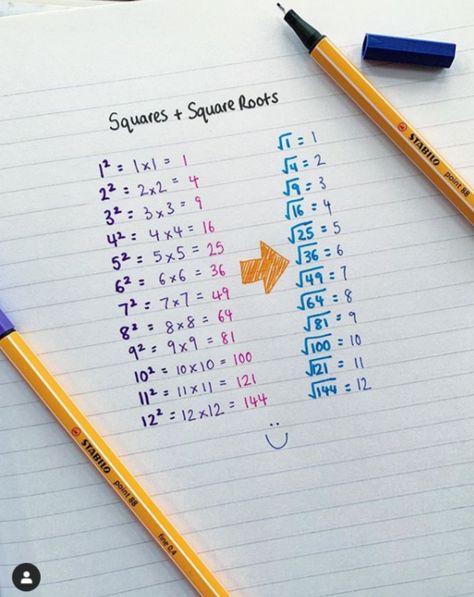 Squares + Square Roots
1² = 1x1 = 1
2² = 2x2 = 4
3² = 3x3 = 9
4² = 4x4 = 16
5² = 5x5 = 25
6² = 6x6 = 36
7² = 7x7 = 49
8² = 8x8 = 64
9² = 9x9 = 81
10² = 10x10 = 100
11² = 11x11 = 121
12² = 12x12 = 144
√1 = 1
√4 = 2
√9 = 3
√16 = 4
√25 = 5
√36 = 6
√49 = 7
√64 = 8
√81 = 9
√100 = 10
√121 = 11
√144 = 12
STABILO point 88
STABILO point 88 fine 0.4